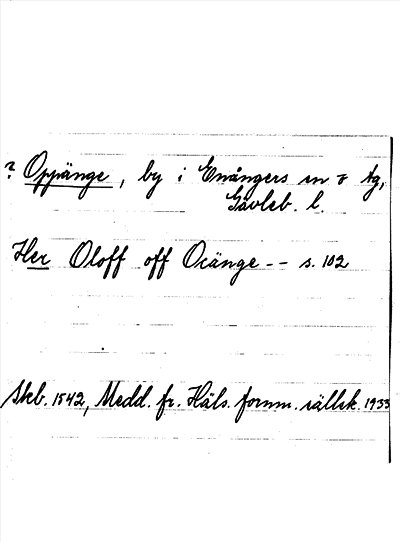 ? Oppänge, by i Enångers sn o tg,
Gävleb. l.
Her Oloff off Oränge -- s. 102
Skb. 1542, Medd. fr. Häls. fornm. sällsk. 1933